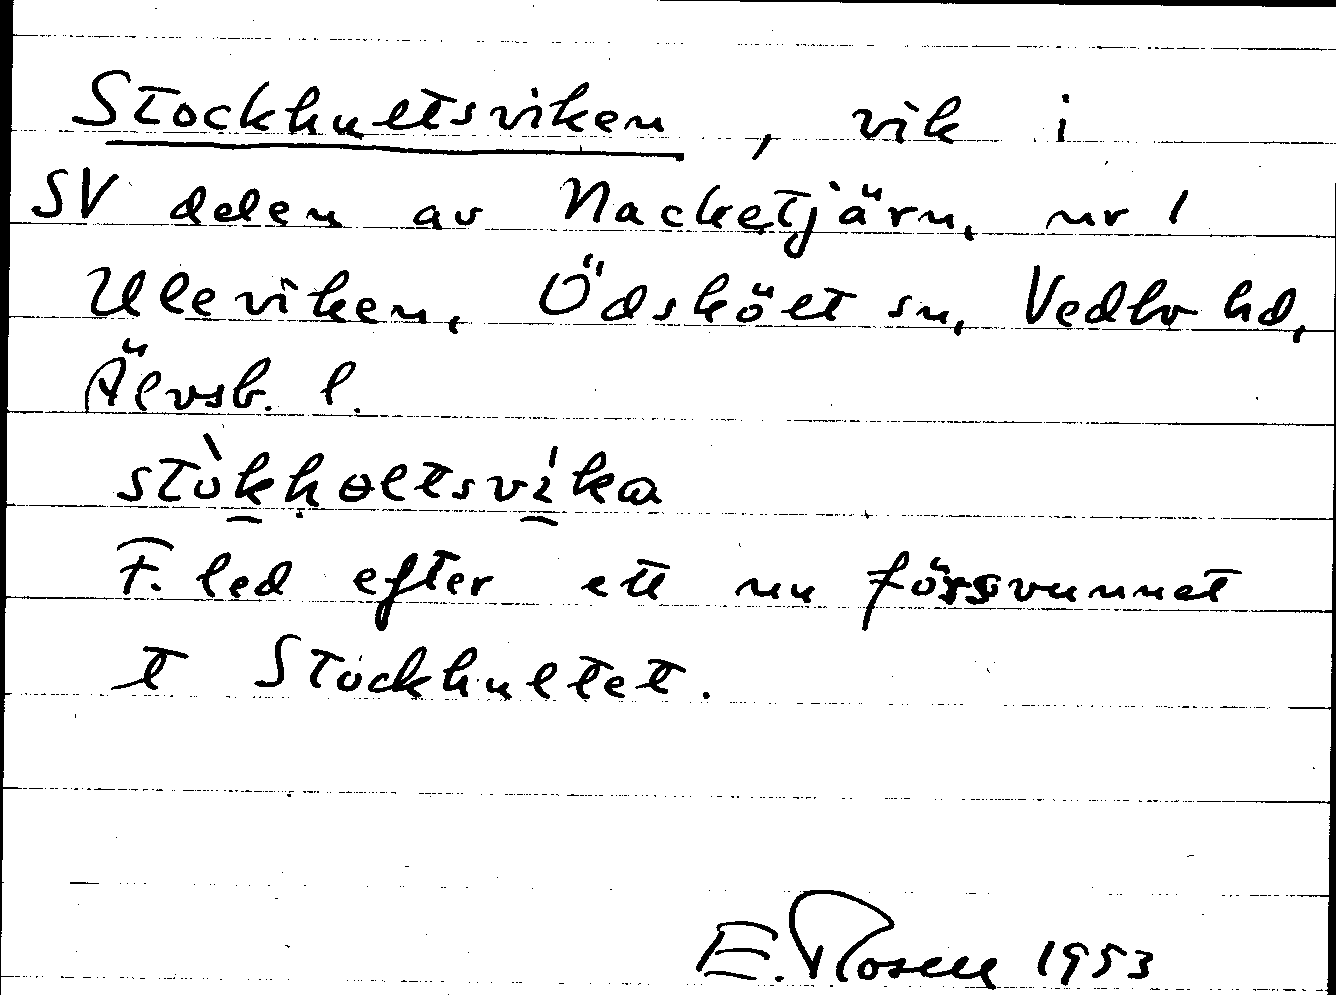 Stockhultsviken, vik i
SV delen av Nacketjärn, nr 1
Uleviken, Ödskölt sn, Vedbo hd,
Älvsb. l.
stòkhɵltsvíka
F. led efter ett nu försvunnet
t Stockhultet.
E. Rosell 1953